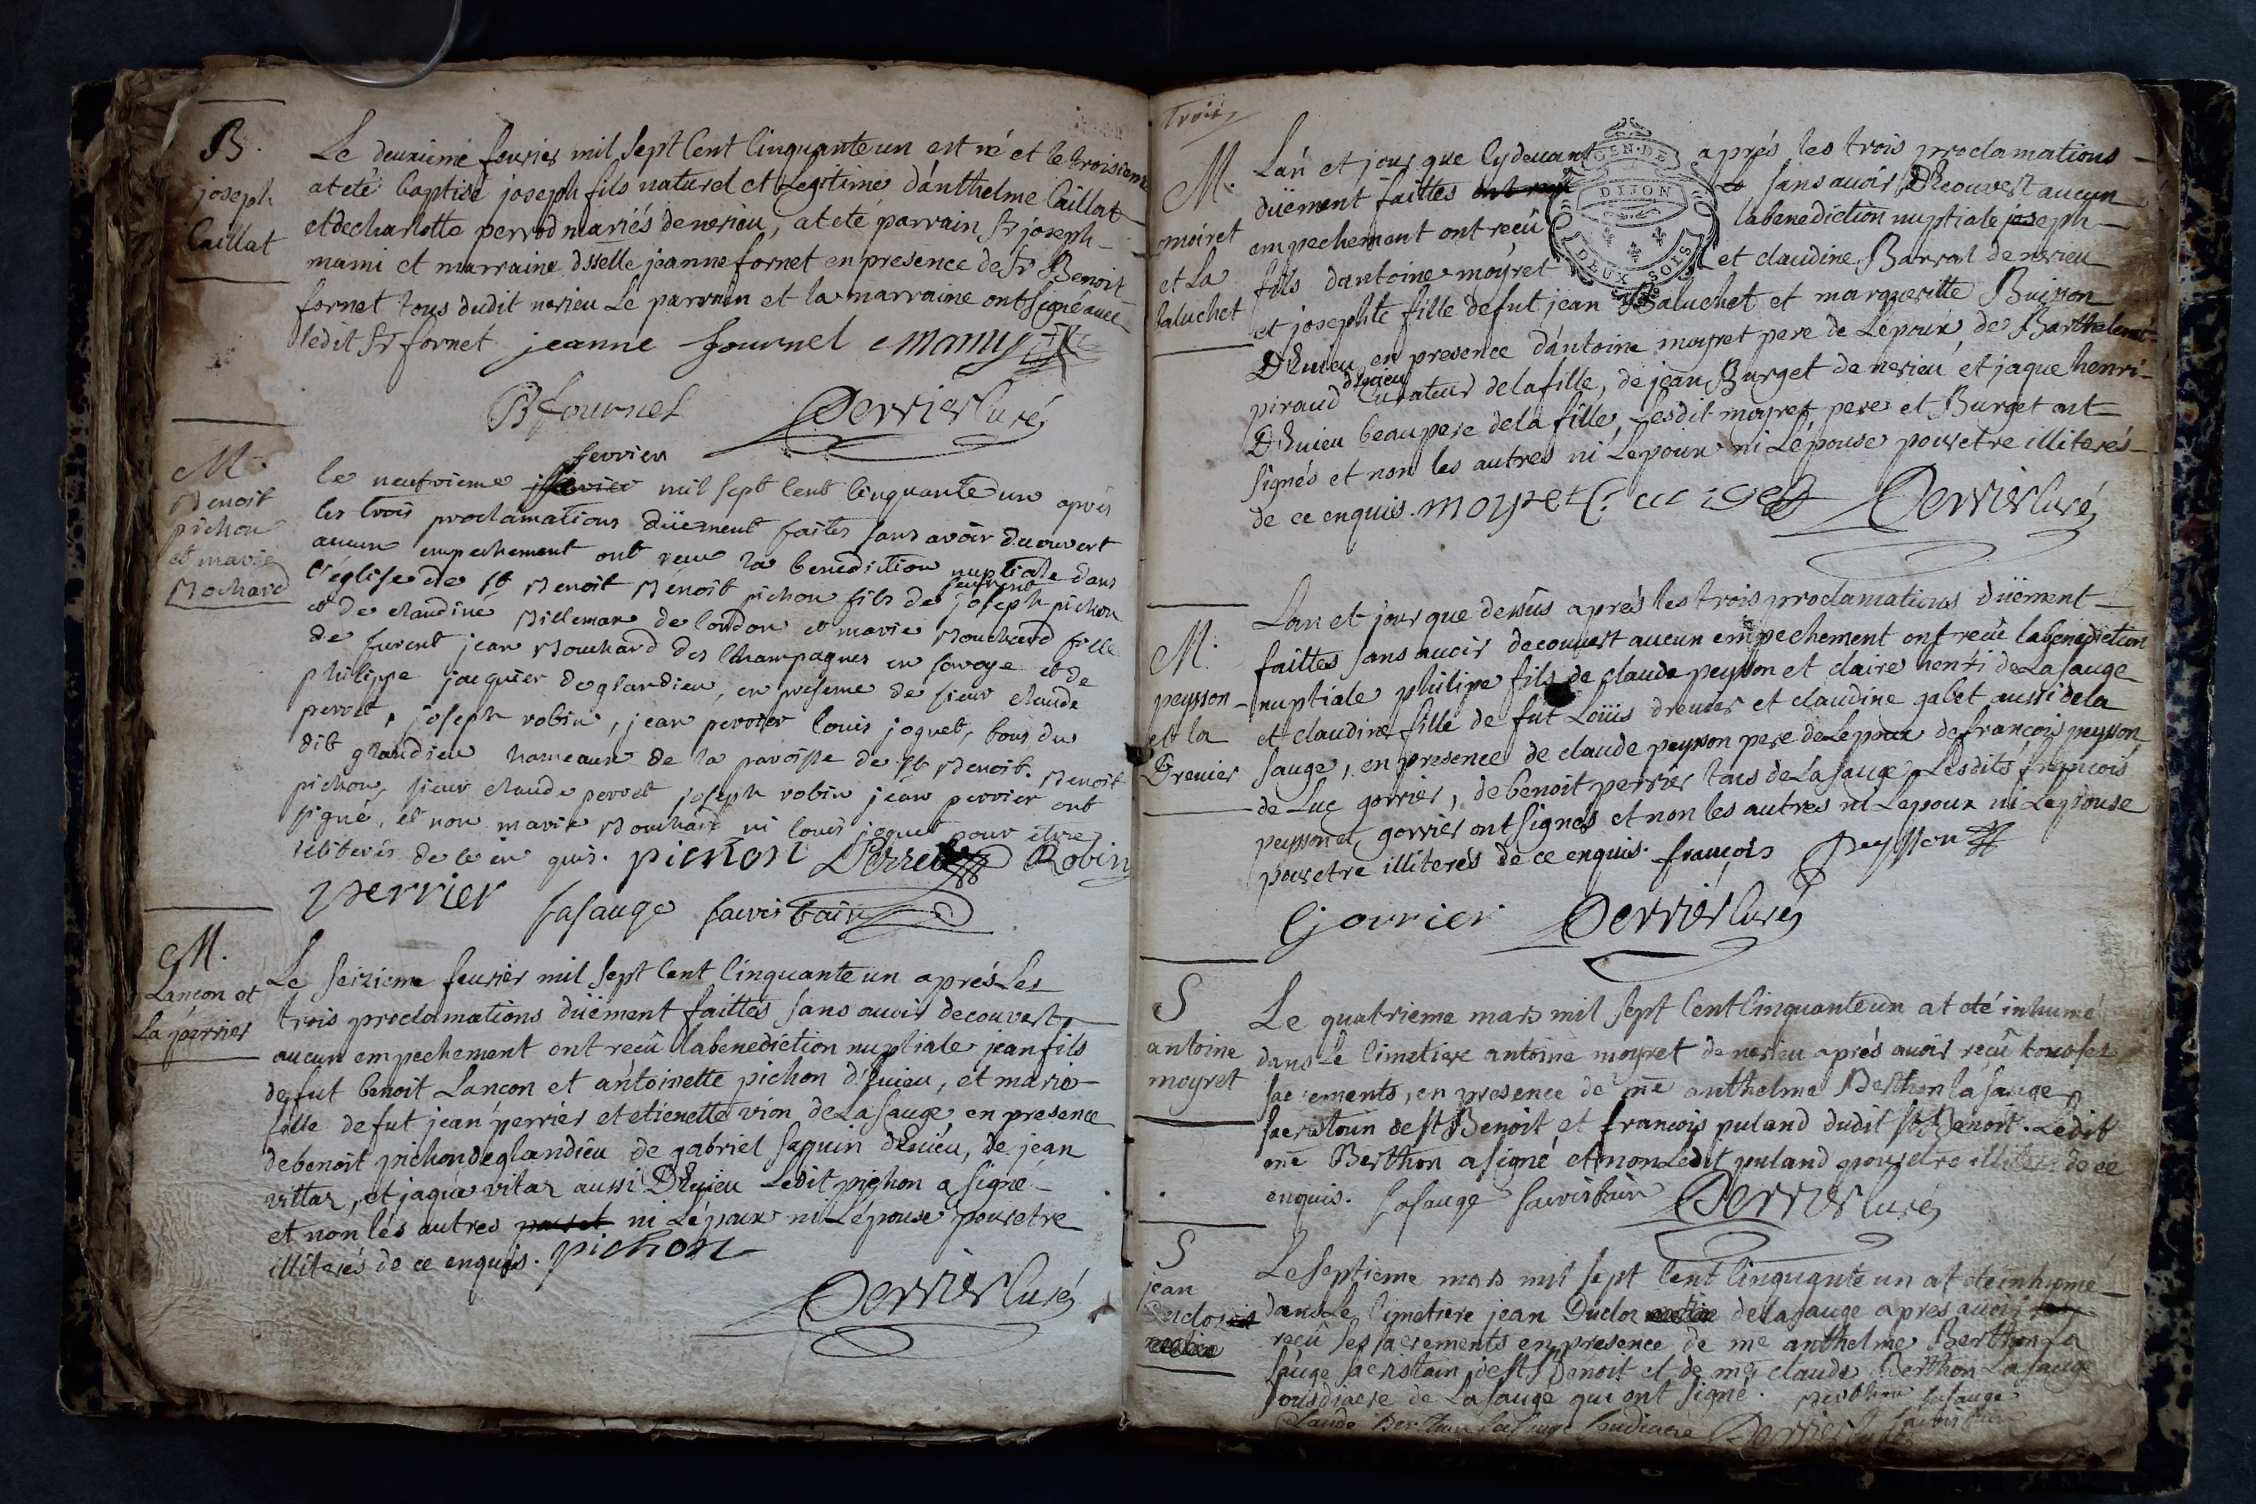 B.
joseph
Caillat
Le deuxieme feurier mil sept Cent Cinquante un est né et le troisieme
at eté baptisé joseph fils naturel et Legitime d'anthelme Caillat
et de charlotte perrod mariés de nerieu, at eté parrain Sr joseph
mami et marraine dsselle jeanne fornet en presence de Sr Benoit
fornet tous dudit nerieu Le parrain et la marraine ont signé avec
ledit Sr fornet jeanne fournel mamy
B fournel Perrier Curé
M.
Benoit
pichon
et marie
Bochard
le neufvieme janvier fevrier mil sept Cent Cinquante un aprés
les trois proclamations düement faites sans avoir decouvert
aucun empechement ont recu la benediction nuptiale dans
l'église de st Benoit Benoit pichon fils de joseph pichon
et de claudine Billeman de loudon et marie Bouchard fille
de furent jean Bouchard des Champagnes en savoye et de
philippe jacquier de glandieu, en presence de sieur claude
perret, joseph robin, jean perrier louis joquet, tous du
dit glandieu hameaux de la paroisse de st Benoit. Benoit
pichon, sieur claude perret joseph robin jean perrier ont
signé, et non marie Bouchard ni louis joquet pour etre
illiterés de ce en quis. pichon Perret Robin
perrier lasauge sacristain
M.
Lançon et
La perrier
Le seizieme feurier mil sept Cent Cinquante un aprés Les
trois proclamations düement faittes sans auoir decouvert
aucun empechement ont reçû la benediction nuptiale jean fils
de fut benoit Lançon et antoinette pichon d'huieu, et marie
fille de fut jean perrier et etienette vion de La sauge en presence
de benoit pichon de glandieu de gabriel saquin dhuieu, de jean
vittaz, et jaque vitaz aussi Dhuieu Ledit pichon a signé
et non les autres ni Lépoux ni Lépouse pour etre
illiterés de ce enquis. pichon
Perrier Curé
Trois
M.
moiret
et La
baluchet
Lan et jour que Cy devant aprés les trois proclamations
düement faittes sans auoir Découvert aucun
empechement ont reçû la benediction nuptiale joseph
fils d'antoine moyret et claudine Barral de nerieu
et josephte fille de fut jean Baluchet et marguerite Buisson
Dhuieu en presence d'antoine moyret pere de Lépoux, de Barthelemi
piraud dhuieu Curateur de la fille, de jean Burget de nerieu et jaque henri
Dhuieu beaupere de la fille, Lesdit moyret pere et Burget ont
signés et non les autres ni Lepoux ni Lépouse pour etre illiterés
de ce enquis. moyret Perrier Curé
M.
peysson
et la
Drevier
Lan et jour que dessus aprés les trois proclamations düement
faittes sans auoir decouvert aucun empechement ont reçû la benediction
nuptiale philipe fils de claude peysson et claire henri de La sauge
et claudine fille de fut Loüis drevier et claudine gabet aussi de la
sauge, en presence de claude peysson pere de Lepoux de françois peysson
de Luc gorrier, de benoit perrier tous de La sauge Lesdits françois
peysson et gorrier ont signés et non les autres ni Lepoux ni Lepouse
pour etre illiterés de ce enquis. françois peysson
Gorrier Perrier Curé
S
antoine
moyret
Le quatrieme mars mil sept Cent Cinquante un at eté inhumé
dans Le Cimetiere antoine moyret de nerieu aprés auoir reçû tous les
sacrements, en presence de me anthelme Berthon la sauge
sacristain de st Benoit et francois puland dudit st Benoit. Ledit
me Berthon a signé et non Ledit puland pour etre illiteré de ce
enquis. Lasauge sacristain Perrier Curé
S
jean
Duclos
Le septieme mars mil sept Cent Cinquante un at eté inhumé
dans Le Cimetiere jean Duclos de la sauge apres auoir
reçû les sacrements en presence de me anthelme Berthon La
sauge sacristain de st Benoit et de me claude Berthon La sauge
sousdiacre de La sauge qui ont signé. Berthon lasauge
sacristain
Claude Berthon La sauge soudiacre Perrier Curé